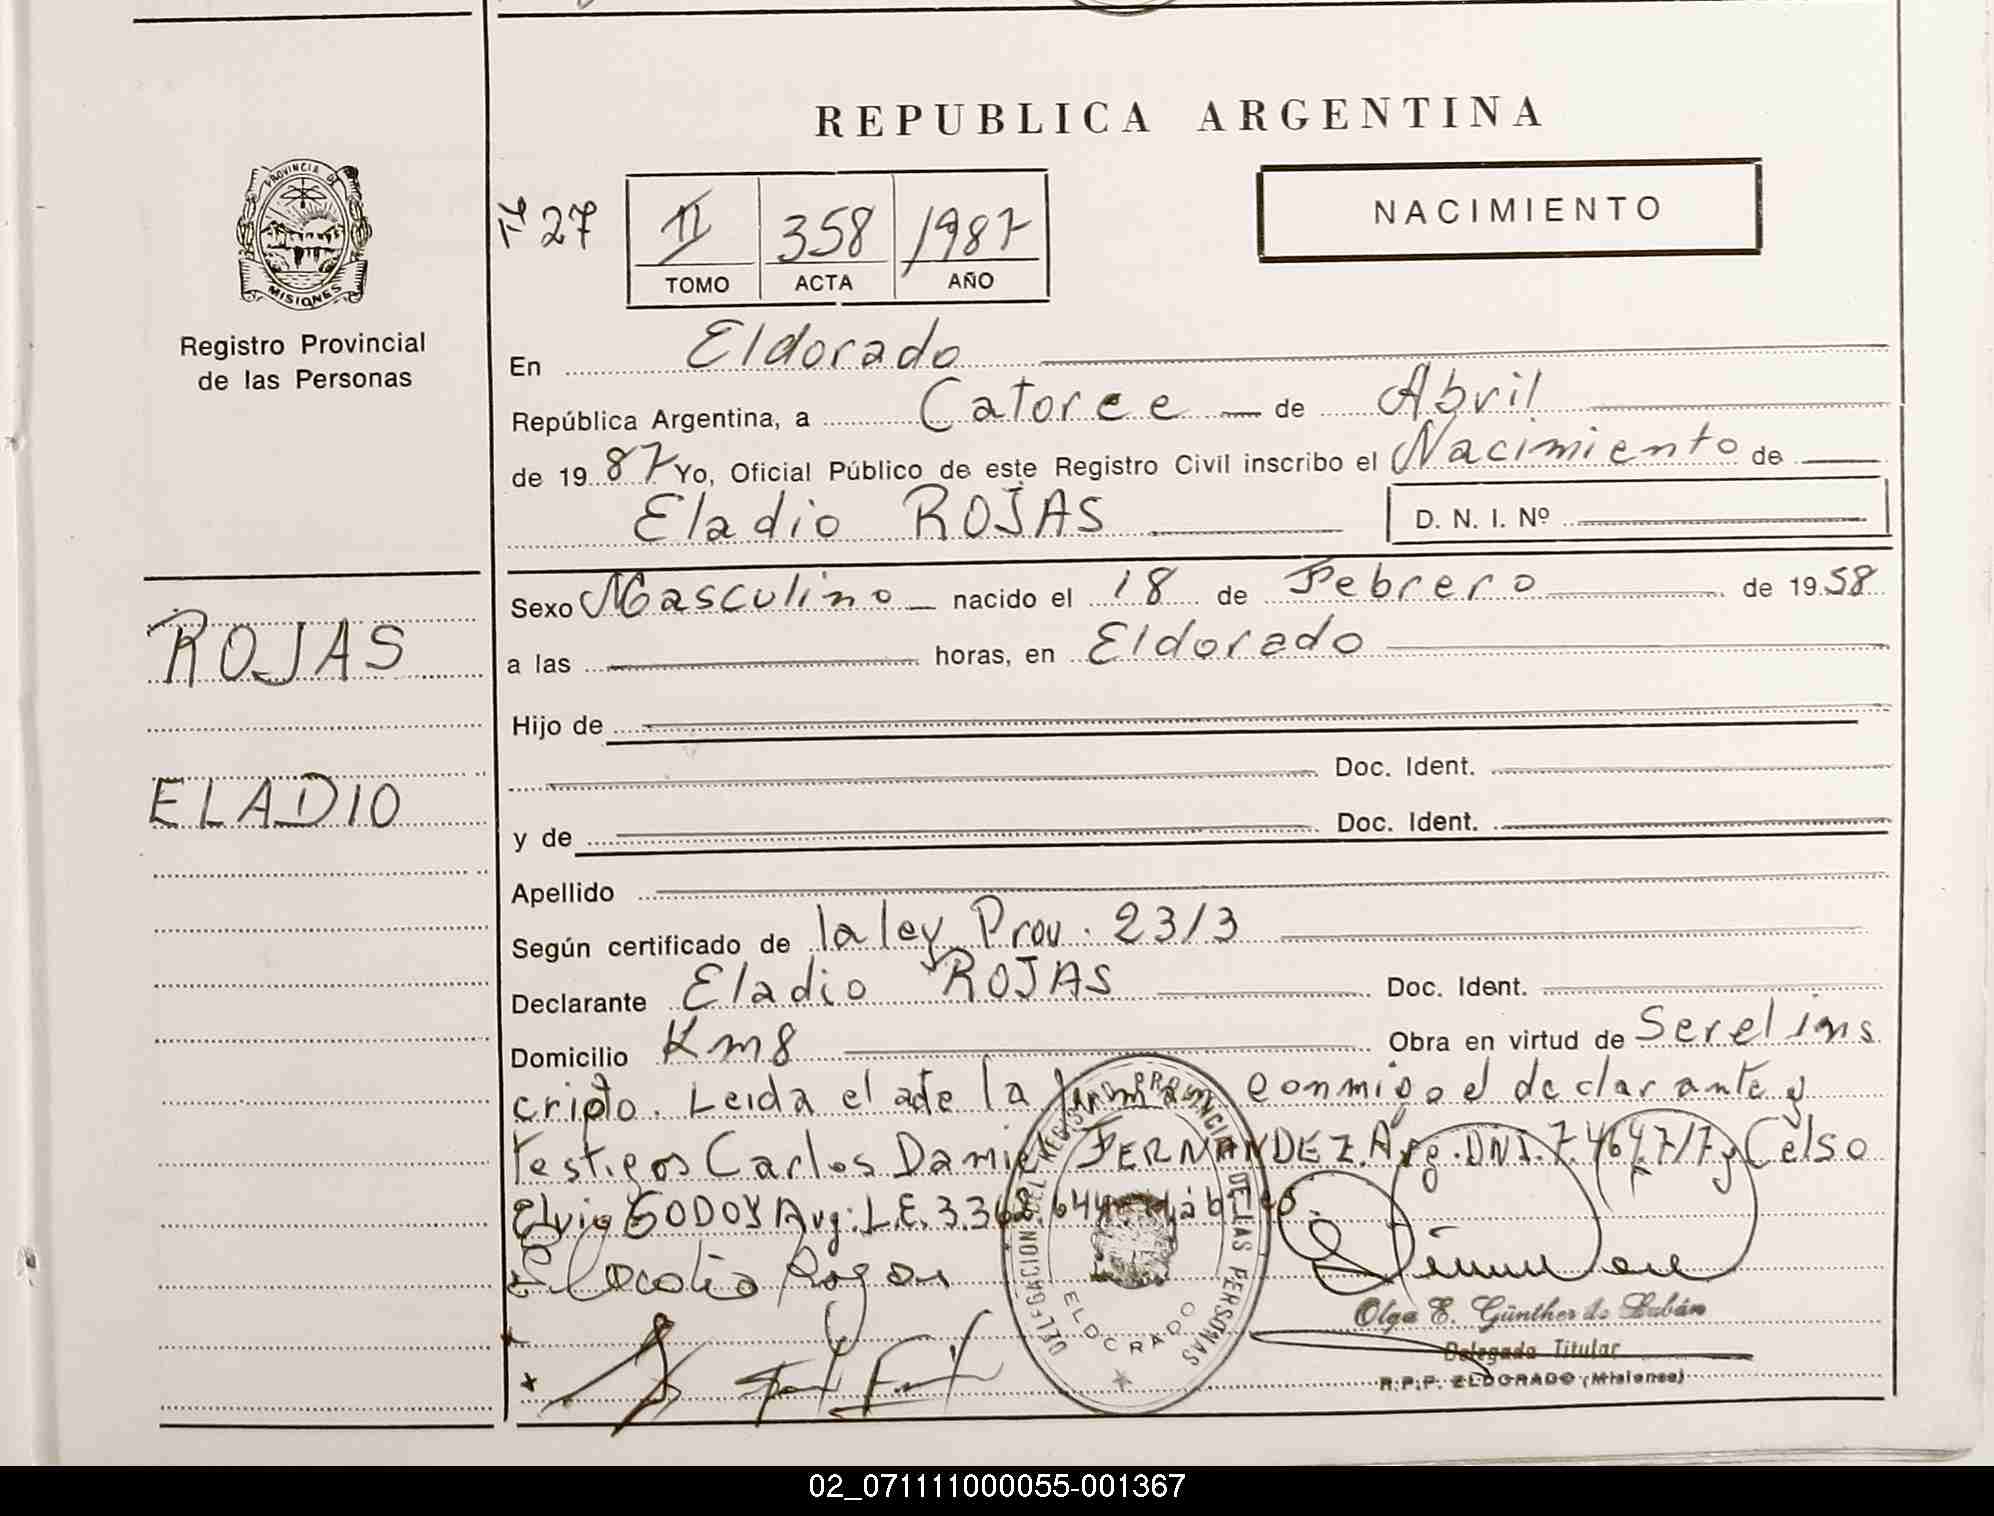 REPUBLICA ARGENTINA
PROVINCIA DE
MISIONES
Registro Provincial
de las Personas
27
II 358 1987
TOMO ACTA AÑO
NACIMIENTO
En Eldorado
República Argentina, a Catorce de Abril
de 1987 Yo, Oficial Público de este Registro Civil inscribo el Nacimiento de
Eladio ROJAS D. N. I. Nº
ROJAS
ELADIO
Sexo Masculino nacido el 18 de Febrero de 1958
a las horas, en Eldorado
Hijo de
Doc. Ident.
y de Doc. Ident.
Apellido
Según certificado de la ley Prov. 23/3
Declarante Eladio ROJAS Doc. Ident.
Domicilio Km8 Obra en virtud de Ser el ins
cripto. Leida el acta la firman conmigo el declarante y
testigos Carlos Damian FERNANDEZ. Arg. DNI. 7. y Celso
Elvio GODOY Arg. L.E. 3.362.644 hábiles.
DELEGACION DEL REGISTRO PROVINCIAL DE LAS PERSONAS
ELDORADO
Olga E. Günther de Lubán
Delegada Titular
R.P.P. ELDORADO (Misiones)
02_071111000055-001367